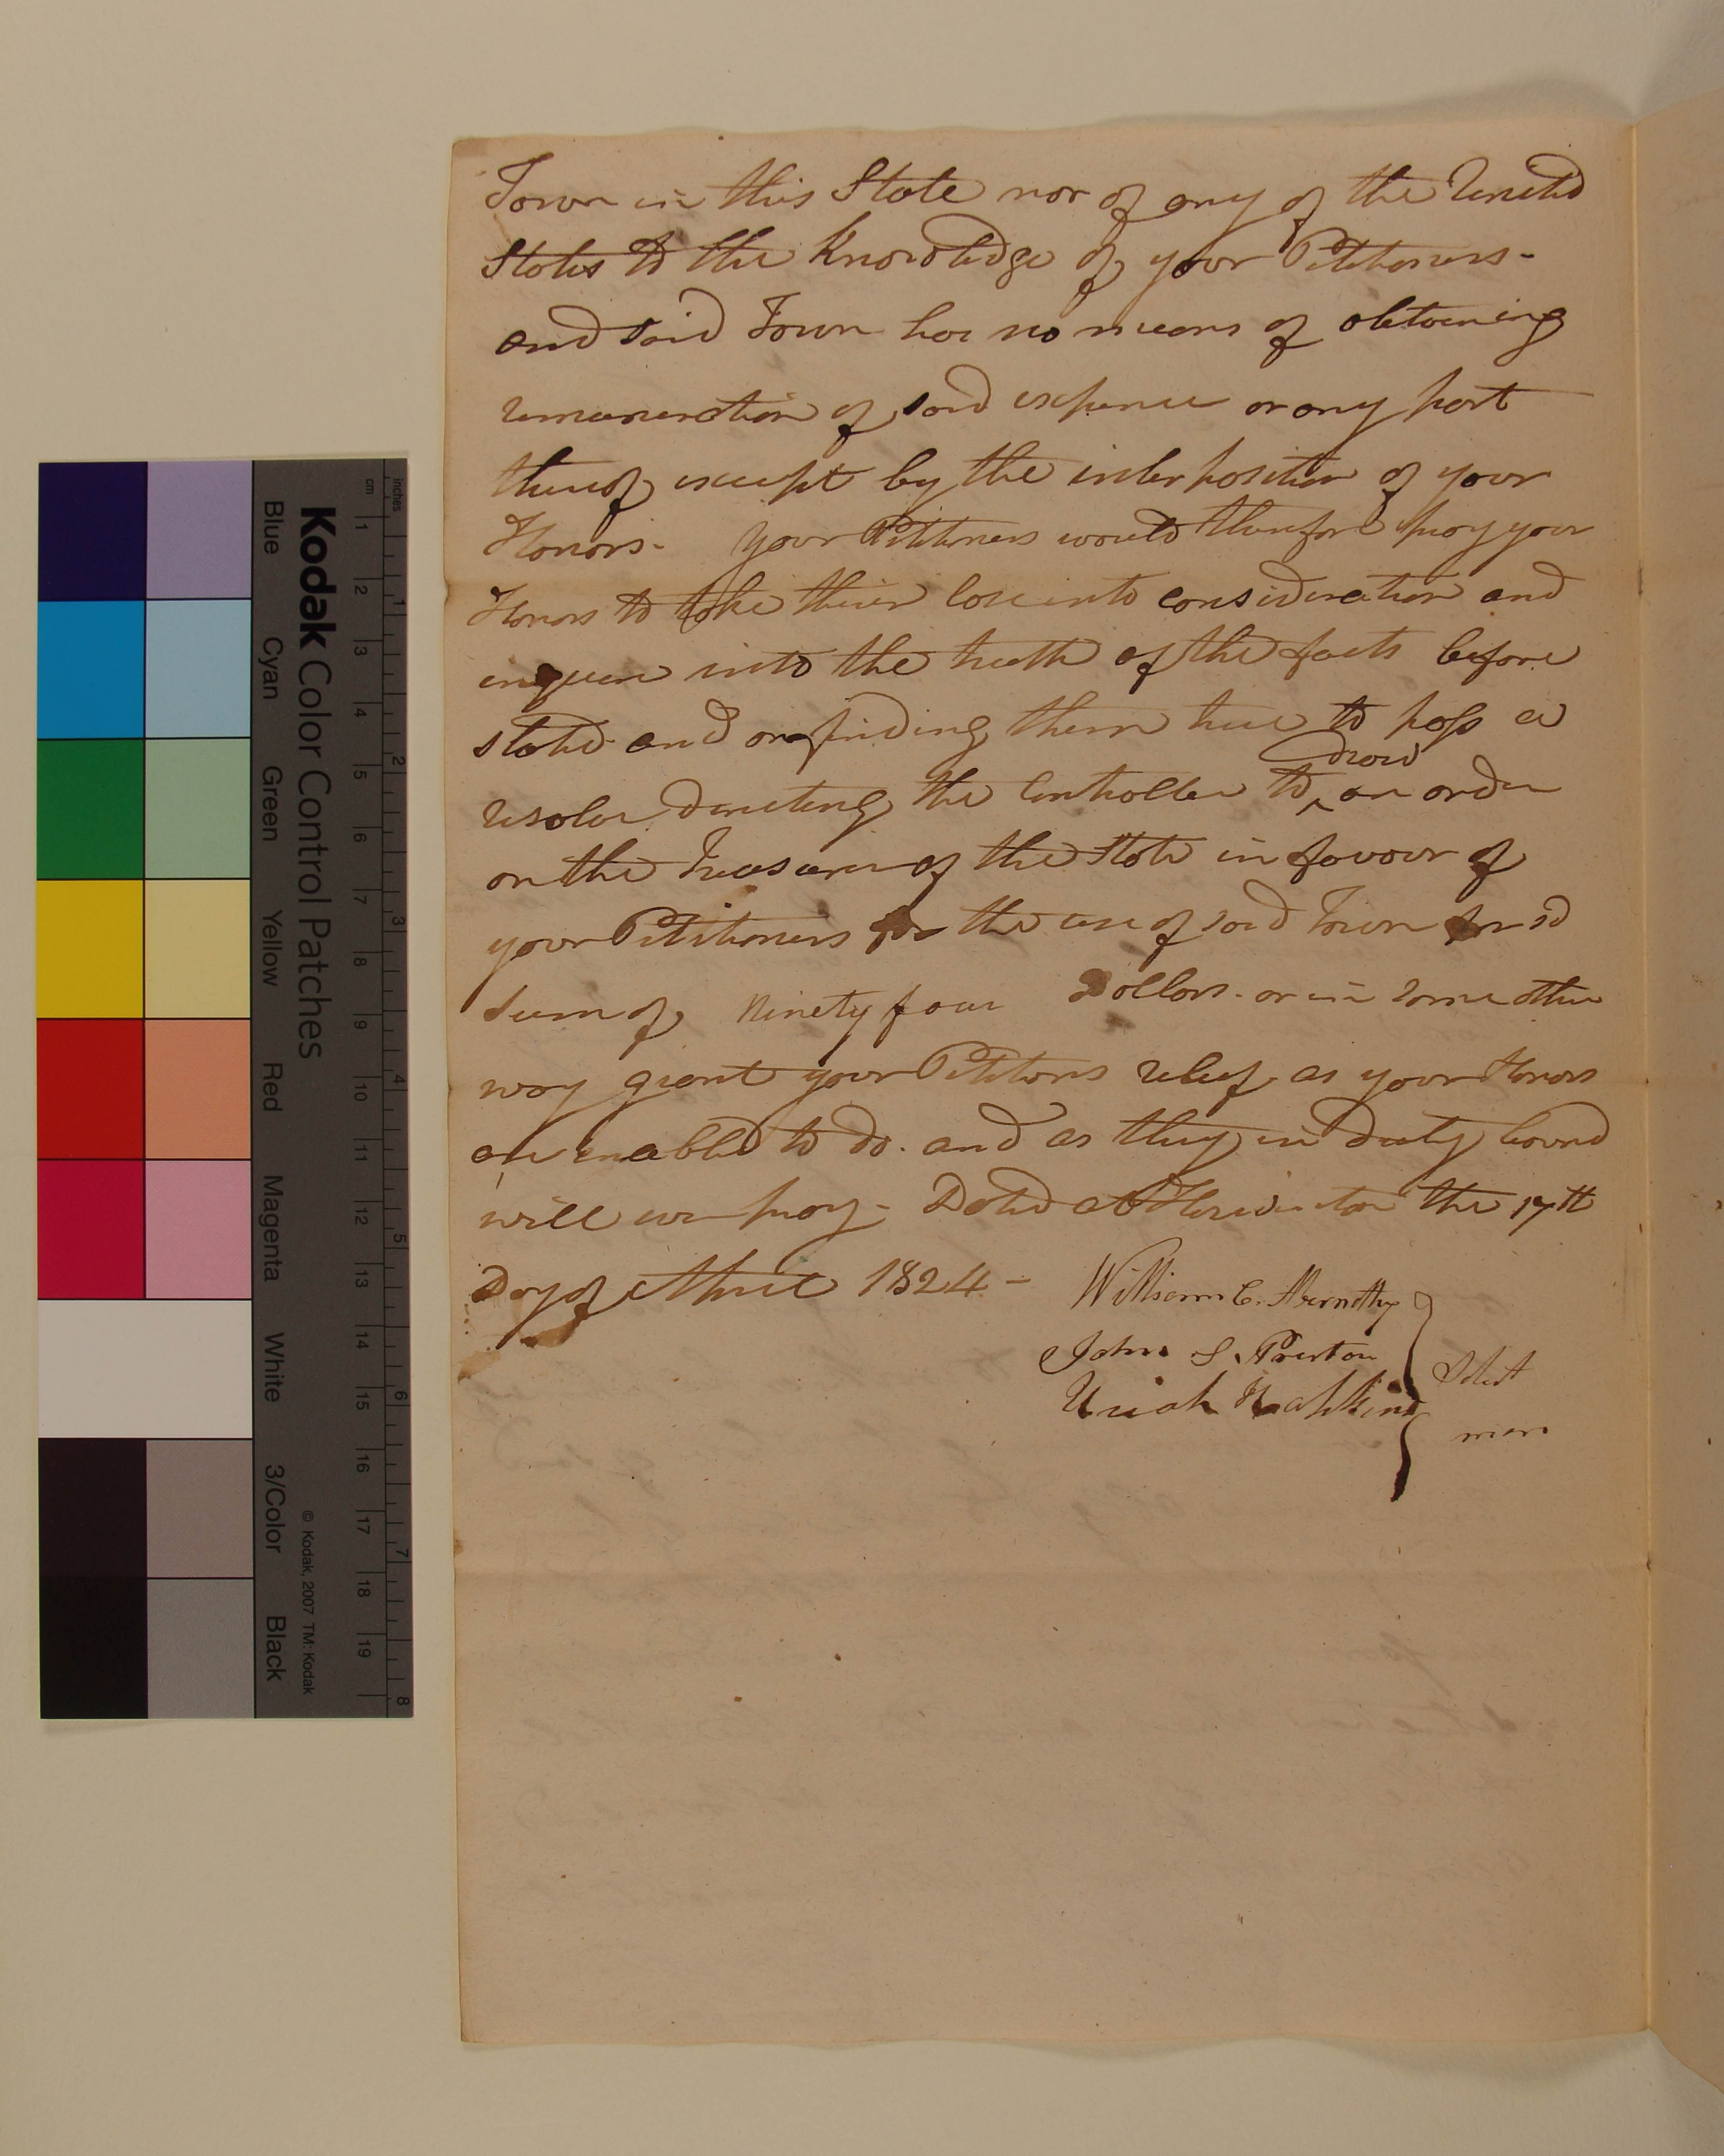 Town in this State nor of any of the United
States to the Knowledge of your Petitioners -
and said Town has no means of obtaining
remuneration of said expence or any part
thereof except by the interposition of your
Honors - Your Petitioners would therefore pray your
Honors to take their case into consideration and
enquire into the truth of the facts before
stated and on finding them true to pass a
resolve directing the Controller to draw an order
on the Treasurer of the State in favour of
your Petitioners for the use of said Town for sd
sum of Ninety four Dollars - or in some other
way grant your Petitiors relief as your Honors
are enabled to do. and as they in duty bound
will ever pray - Dated at Harwinton the 17th
Day of April 1824 -
William C. Abernethy
John S. Preston
Uriah Hopkins
Select
men
Kodak Color Control Patches
Blue Cyan Green Yellow Red Magenta White 3/Color Black
© Kodak, 2007 TM: Kodak
inches 1 2 3 4 5 6 7 8
cm 1 2 3 4 5 6 7 8 9 10 11 12 13 14 15 16 17 18 19